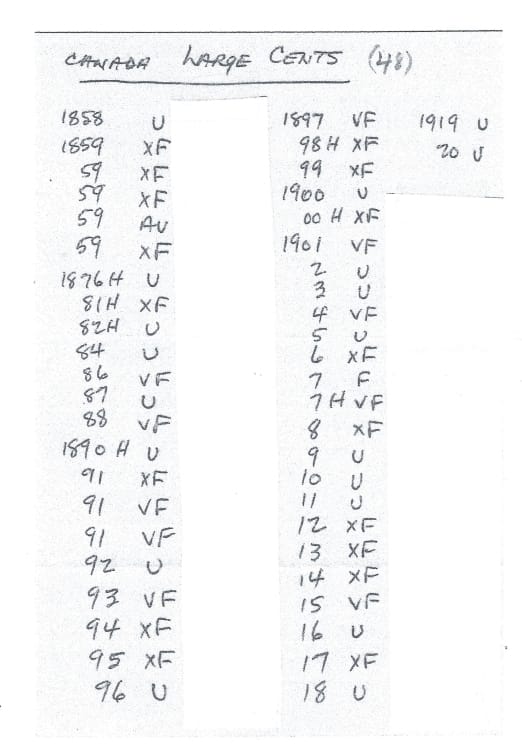 CANADA LARGE CENTS (48)
1858 U
1859 XF
59 XF
59 XF
59 AU
59 XF
1876 H U
81H XF
82H U
84 U
86 VF
87 U
88 VF
1890 H U
91 XF
91 VF
91 VF
92 U
93 VF
94 XF
95 XF
96 U
1897 VF
98 H XF
99 XF
1900 U
00 H XF
1901 VF
2 U
3 U
4 VF
5 U
6 XF
7 F
7 H VF
8 XF
9 U
10 U
11 U
12 XF
13 XF
14 XF
15 VF
16 U
17 XF
18 U
1919 U
20 U